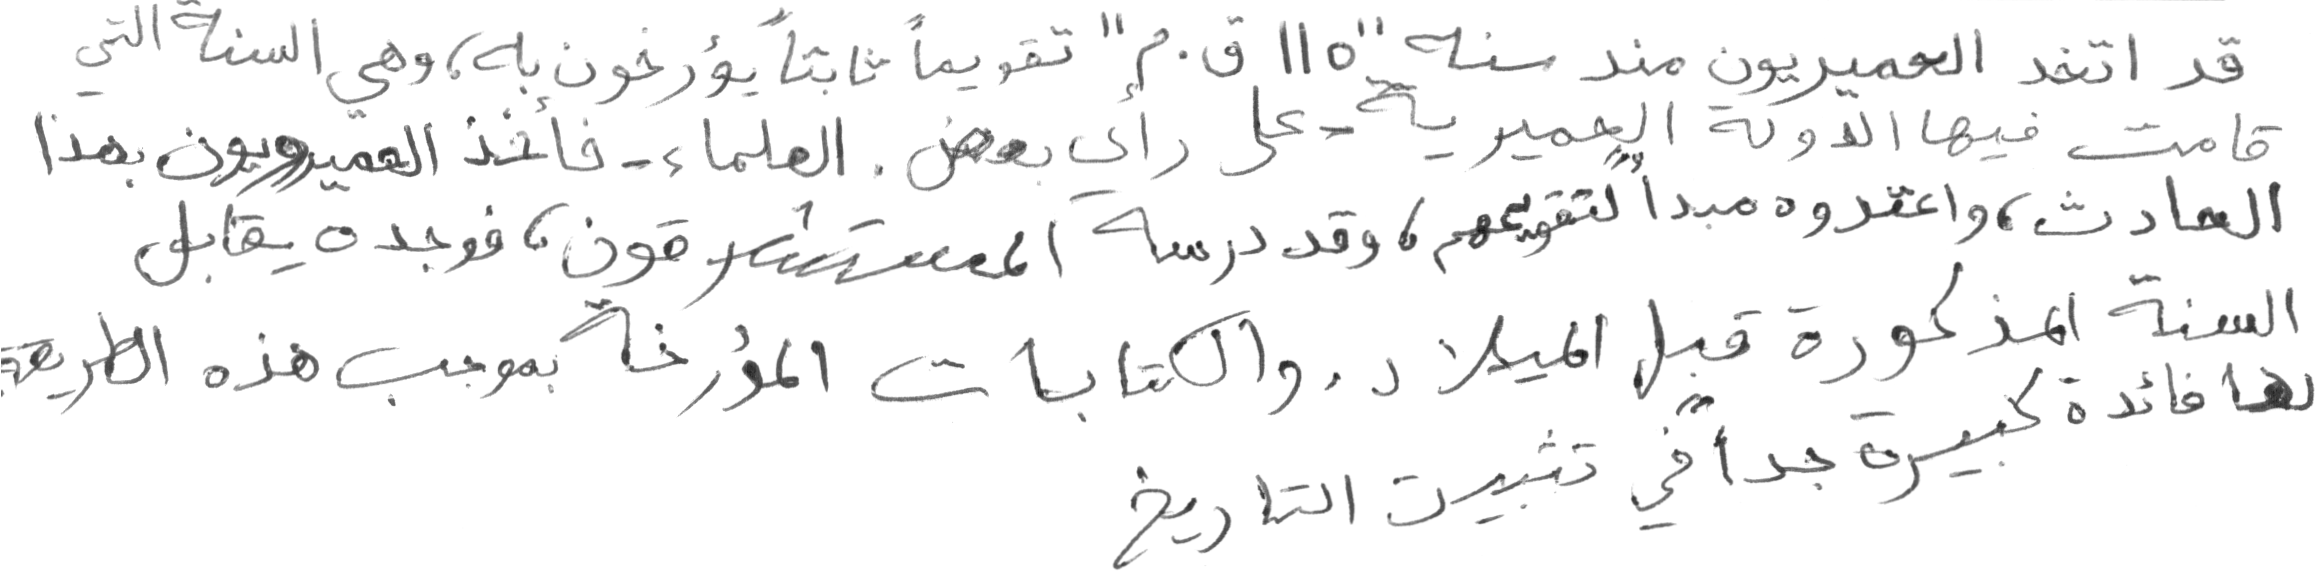 قد اتخد الحميريون مند سنه "115 ق.م" تقويماً ثابتاً يؤرخون به، وهي السنة التي
قامت فيها الدولة الحميرية - على رأي بعض. العلماء - فأخذ الحميرويون بهذا
الحادث، واعتدوه مبدأً لتقويمهم، وقد درسه المستشرقون، فوجده يقابل
السنة المذكورة قبل الميلاد. والكتابات المؤرخة بموجب هذه الطريقة
لها فائدة كبيرة جداً في تثبيت التاريخ